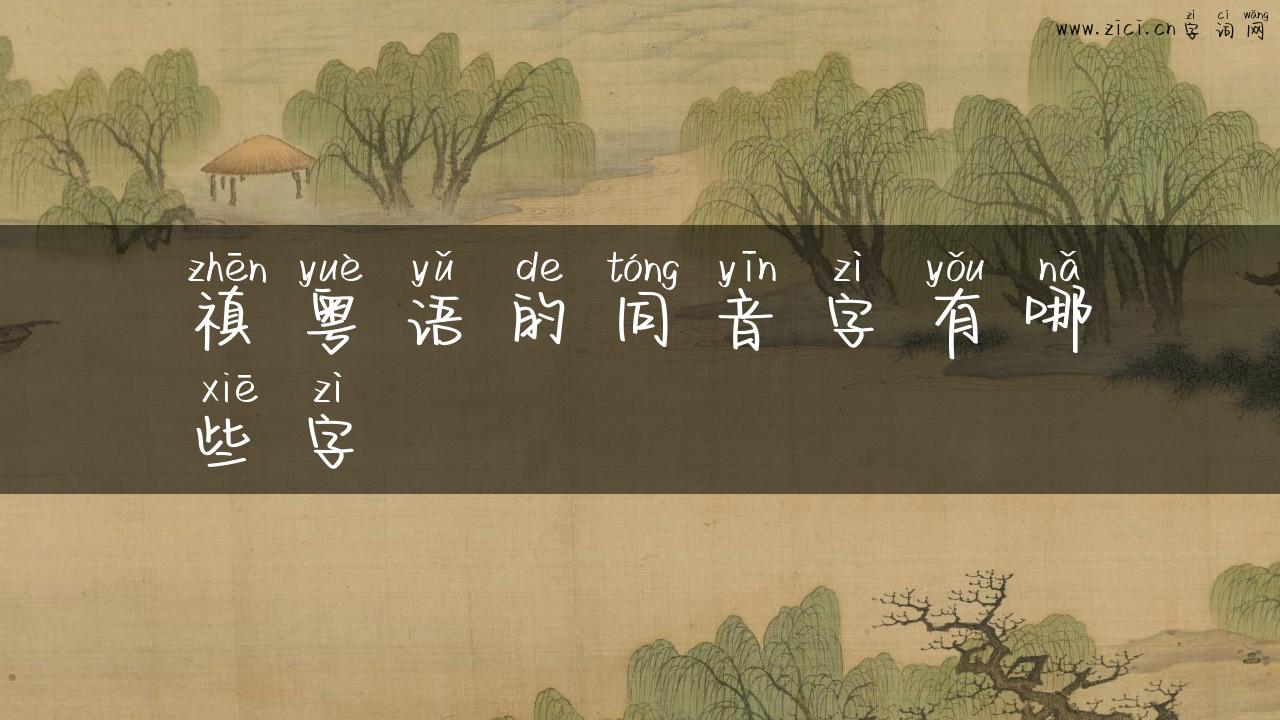 zì cí wǎng
www.zici.cn字词网
zhēn yuè yǔ de tóng yīn zì yǒu nǎ
禛粤语的同音字有哪
xiē zì
些字